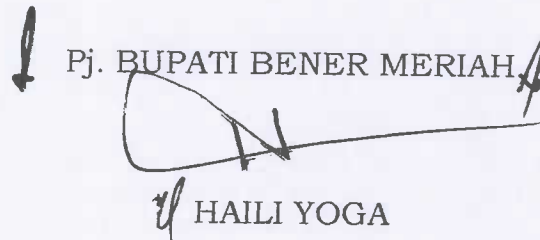 Pj. BUPATI BENER MERIAH,
HAILI YOGA